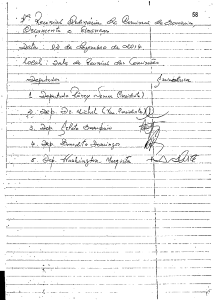 58
7ª Reunião Ordinária da Comissão de Economia
Orçamento e Finanças
Data: 02 de Dezembro de 2014.
Local: Sala de Reunião das Comissões
Deputados Assinatura
1. Deputado (Presidente)
2. Dep. Dr. Michel (Vice Presidente)
3. Dep.
4. Dep. Benedito Domingos
5. Dep. Washington Mesquita